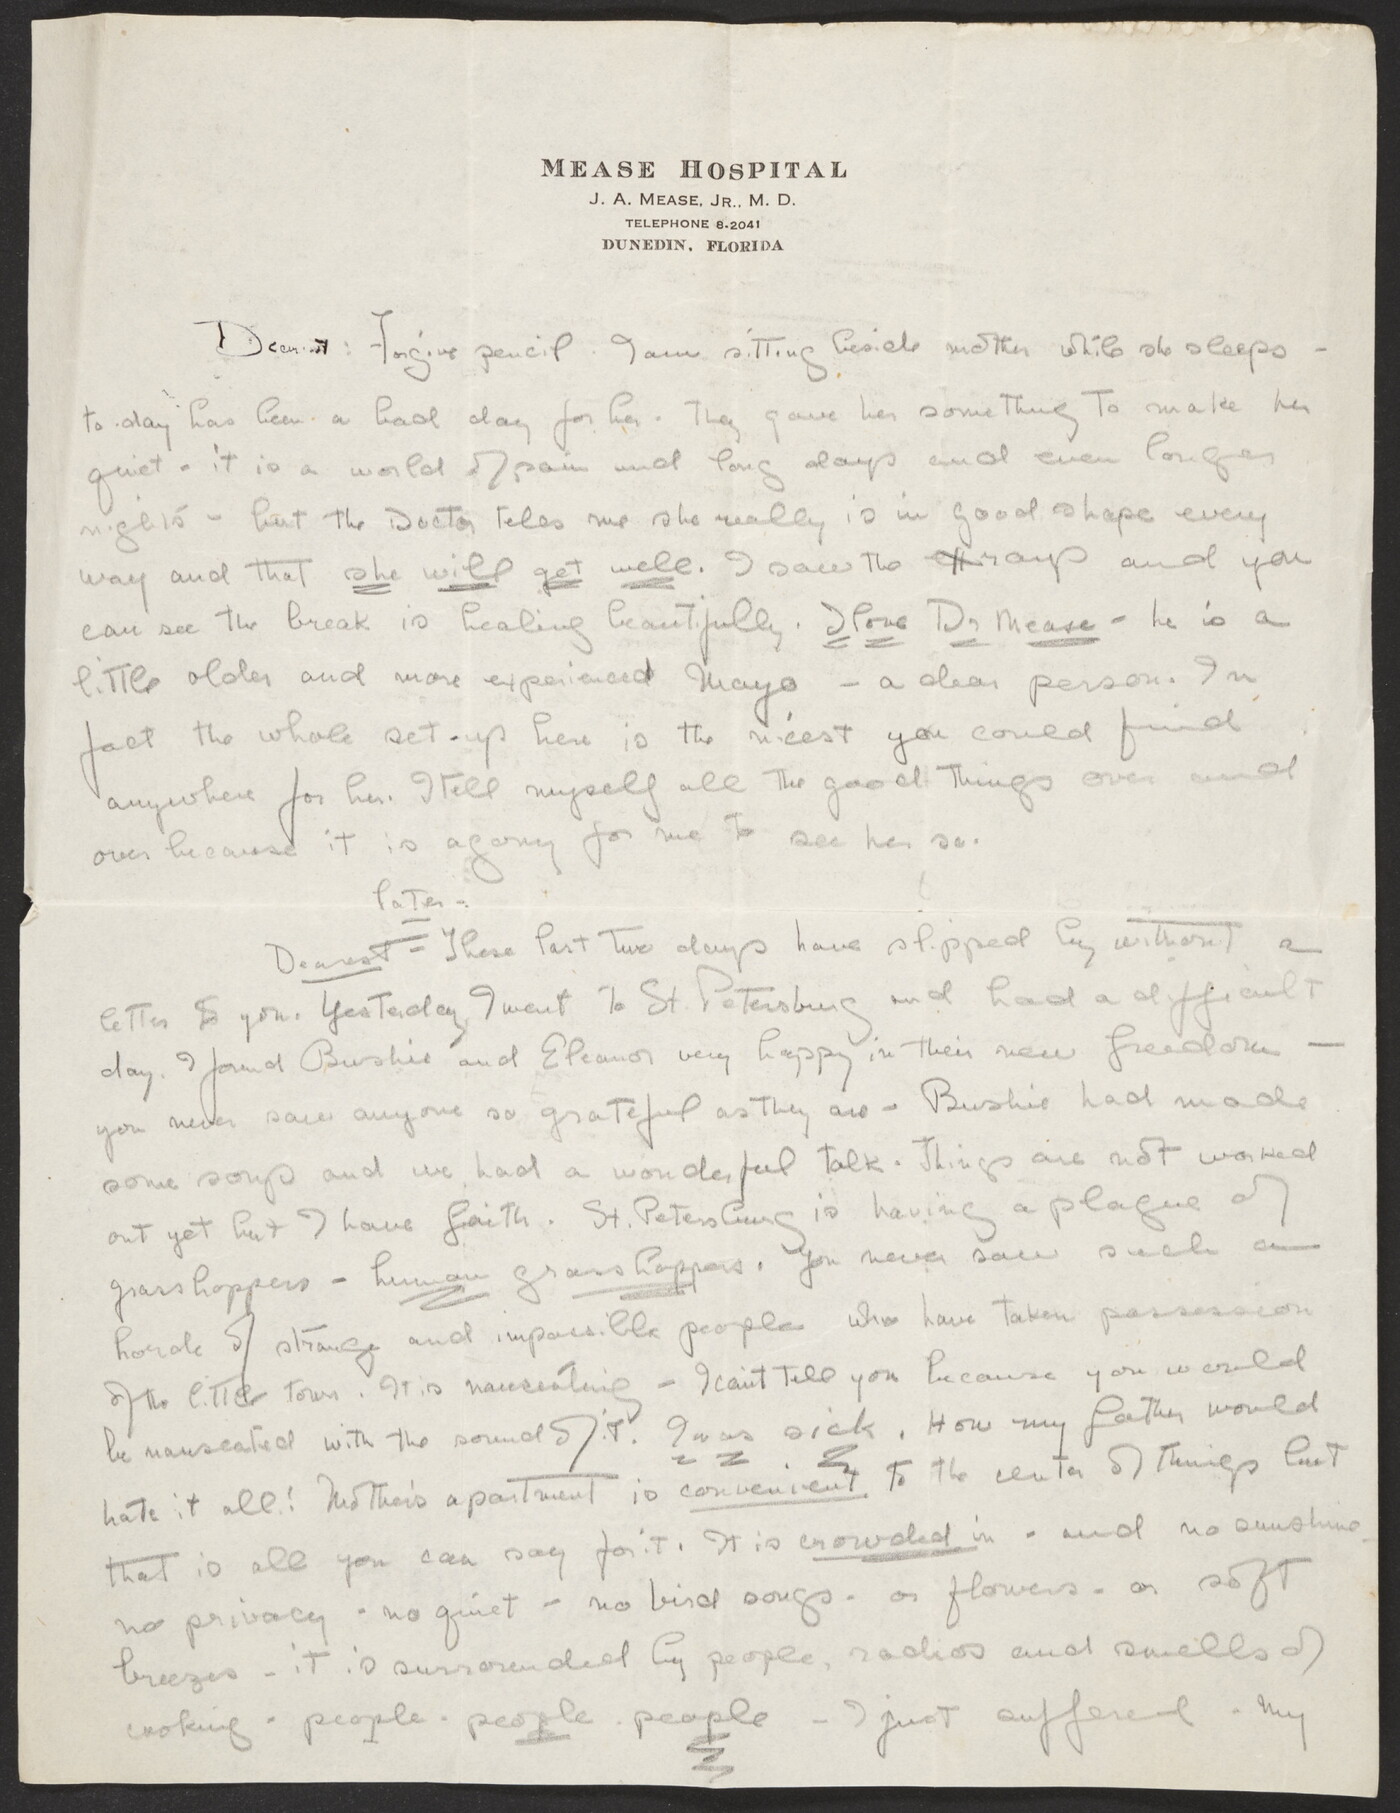 MEASE HOSPITAL
J. A. MEASE, JR., M. D.
TELEPHONE 8-2041
DUNEDIN, FLORIDA
Dearest: Forgive pencil. I am sitting beside mother while she sleeps -
to-day has been a bad day for her. They gave her something to make her
quiet - it is a world of pain and long days and even longer
nights - but the Doctor tells me she really is in good shape every
way and that she will get well. I saw the Xrays and you
can see the break is healing beautifully. I love Dr Mease - he is a
little older and more experienced Mayo - a dear person. In
fact the whole set-up here is the nicest you could find
anywhere for her. I tell myself all the good things over and
over because it is agony for me to see her so.
later -
Dearest - These last two days have slipped by without a
letter to you. Yesterday I went to St. Petersburg and had a difficult
day. I found Bushie and Eleanor very happy in their new freedom -
you never saw anyone so grateful as they are - Bushie had made
some soup and we had a wonderful talk. Things are not worked
out yet but I have faith. St. Petersburg is having a plague of
grasshoppers - human grasshoppers. You never saw such a
horde of strange and impossible people who have taken possession
of the little town. It is nauseating - I can't tell you because you would
be nauseated with the sound of it. I was sick. How my father would
hate it all! Mother's apartment is convenient to the center of things but
that is all you can say for it. It is crowded in - and no sunshine -
no privacy - no quiet - no bird songs - or flowers - or soft
breezes - it is surrounded by people, radios and smells of
cooking - people - people - people - I just suffered. My